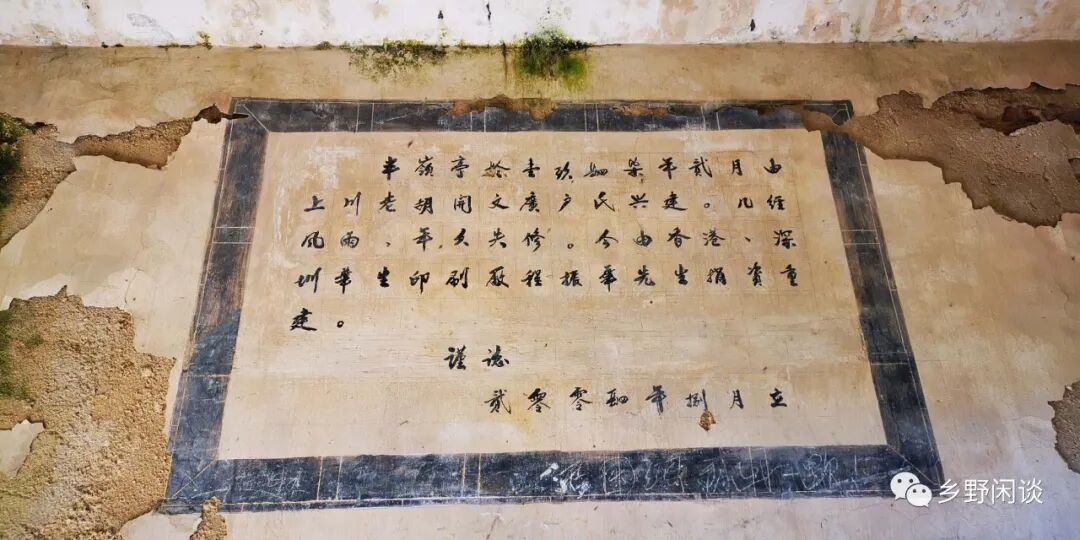 半嶺亭於壹玖肆柒年贰月由
上川老胡開文广户氏兴建。几经
风雨、年久失修。今由香港、深
圳華生印刷厰程振華先生捐资重
建。
谨志
贰零零肆年捌月立
乡野闲谈